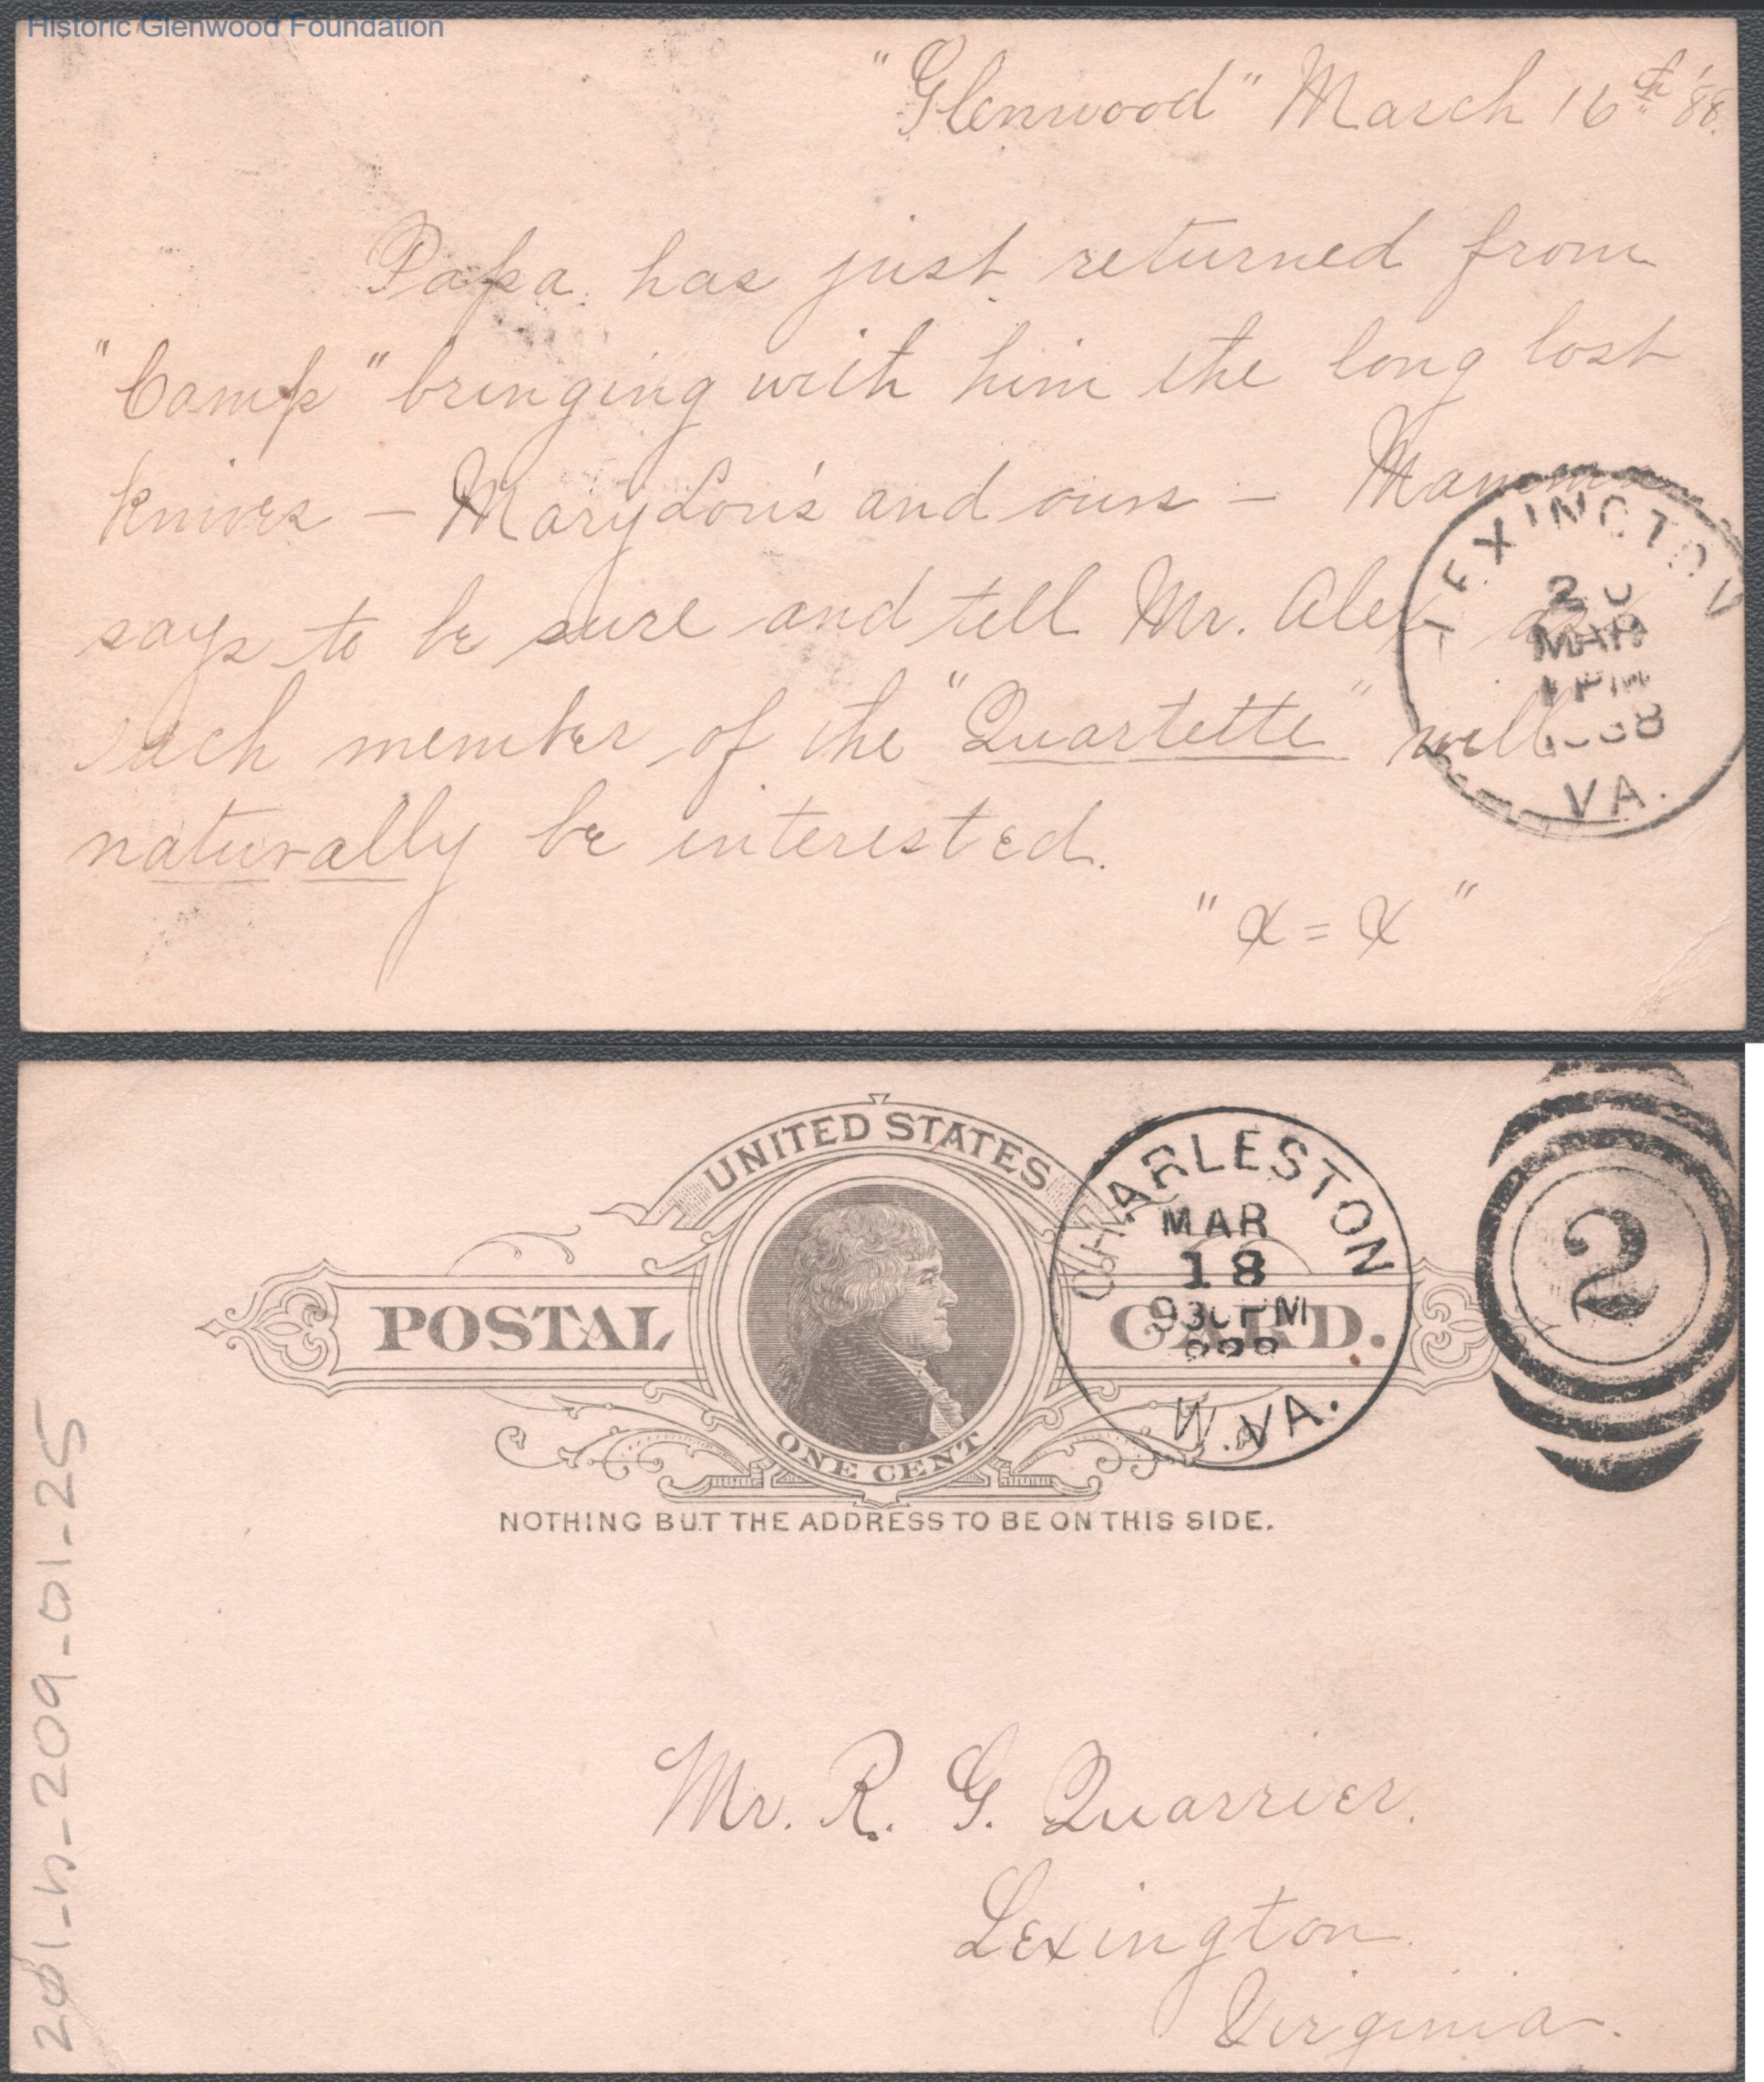 Historic Glenwood Foundation
"Glenwood" March 16th '88.
Papa has just returned from
"Camp" bringing with him the long lost
knives - Mary Lou's and ours - Mamma
says to be sure and tell Mr. Alex as
each member of the "Quartette" will
naturally be interested.
"X = X"
LEXINGTON
20
MAR
1 PM
1888
VA.
UNITED STATES
POSTAL CARD.
ONE CENT
NOTHING BUT THE ADDRESS TO BE ON THIS SIDE.
CHARLESTON
MAR
18
930 PM
888
W. VA.
2
Mr. R. G. Quarrier.
Lexington
Virginia.
201-h-209-01-25